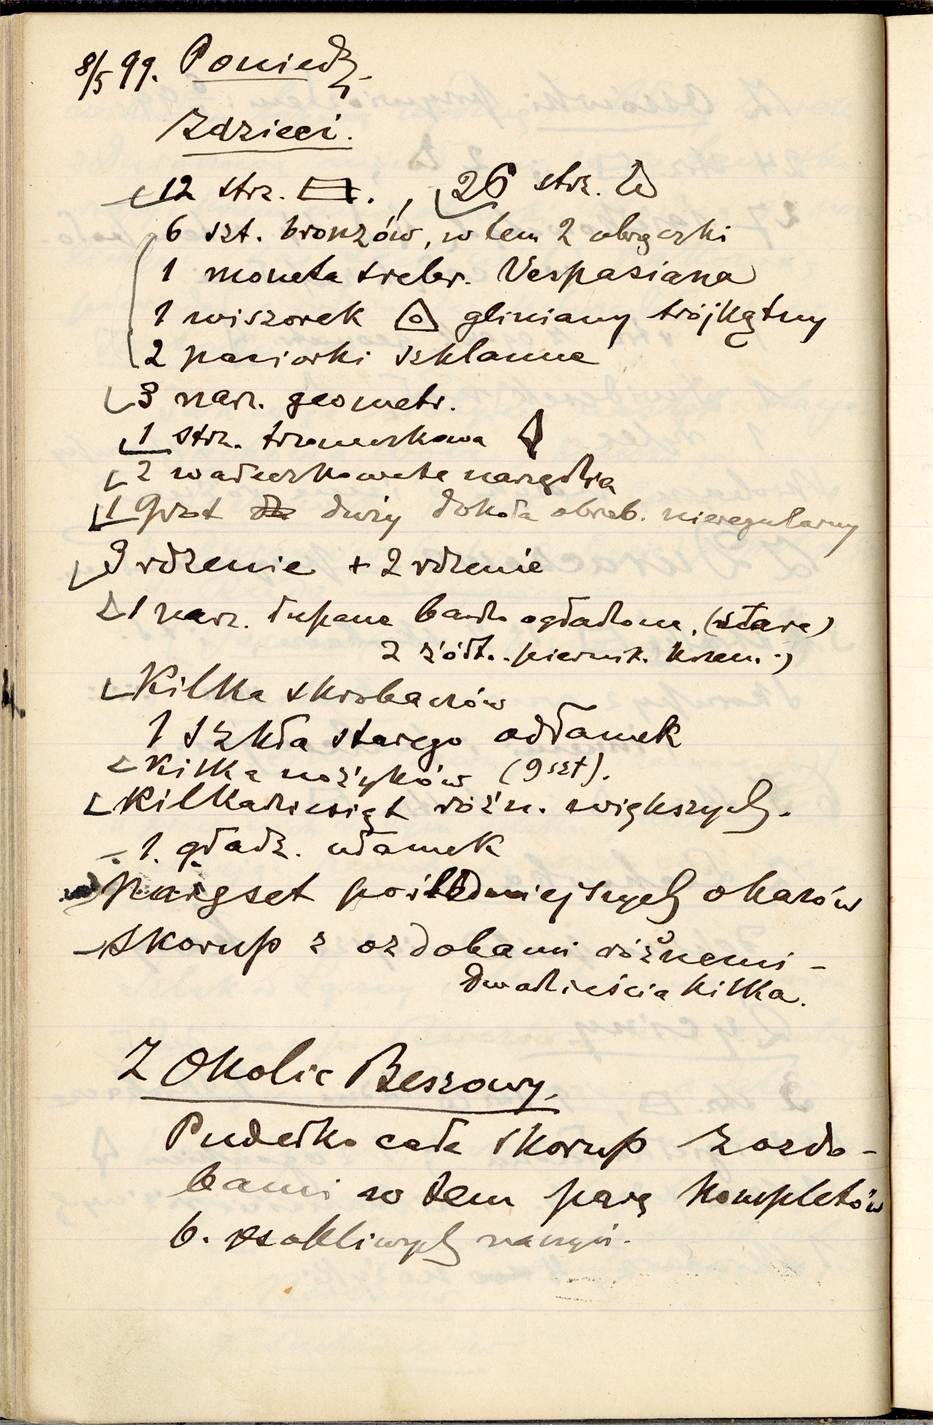 8/5 99. Poniedz.
Zdzieci.
12 strz. , 26 strz.
6 szt. bronzów, w tem 2 obrączki
1 moneta srebr. Vespasiana
1 wiszorek gliniany trójkątny
2 paciorki szklanne
3 narz. geometr.
1 strz. trzoneczkowa
2 wadeczkowate narzędzia
1 Grot duży dokoła obrob. nieregularny
9 rdzenie + 2 rdzenie
1 narz. łupane bardo ogładzone, (stare)
z żółt. piernik. krzem.)
Kilka skrobaczów
1 szkła starego odłamek
kilka nożyków (9 szt).
Kilkadziesiąt różn. większych.
1. gładz. ułamek
Paręset pośledniejszych okazów
Skorup z ozdobami różnemi –
dwadzieścia kilka.
Z Okolic Beszowy.
Pudełko całe skorup z ozdo-
bami w tem parę kompletów
b. osobliwych naczyń.